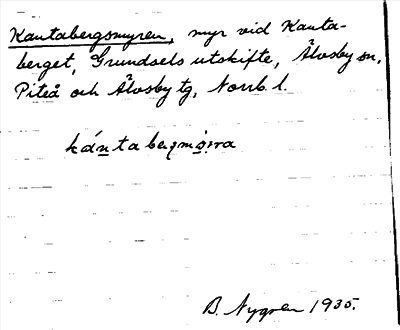 Kantabergsmyren, myr vid Kanta-
berget, Grundsels utskifte, Älvsby sn,
Piteå och Älvsby tg, Norrb. l.
kánta bergmö̀rra
B. Nygren 1935.